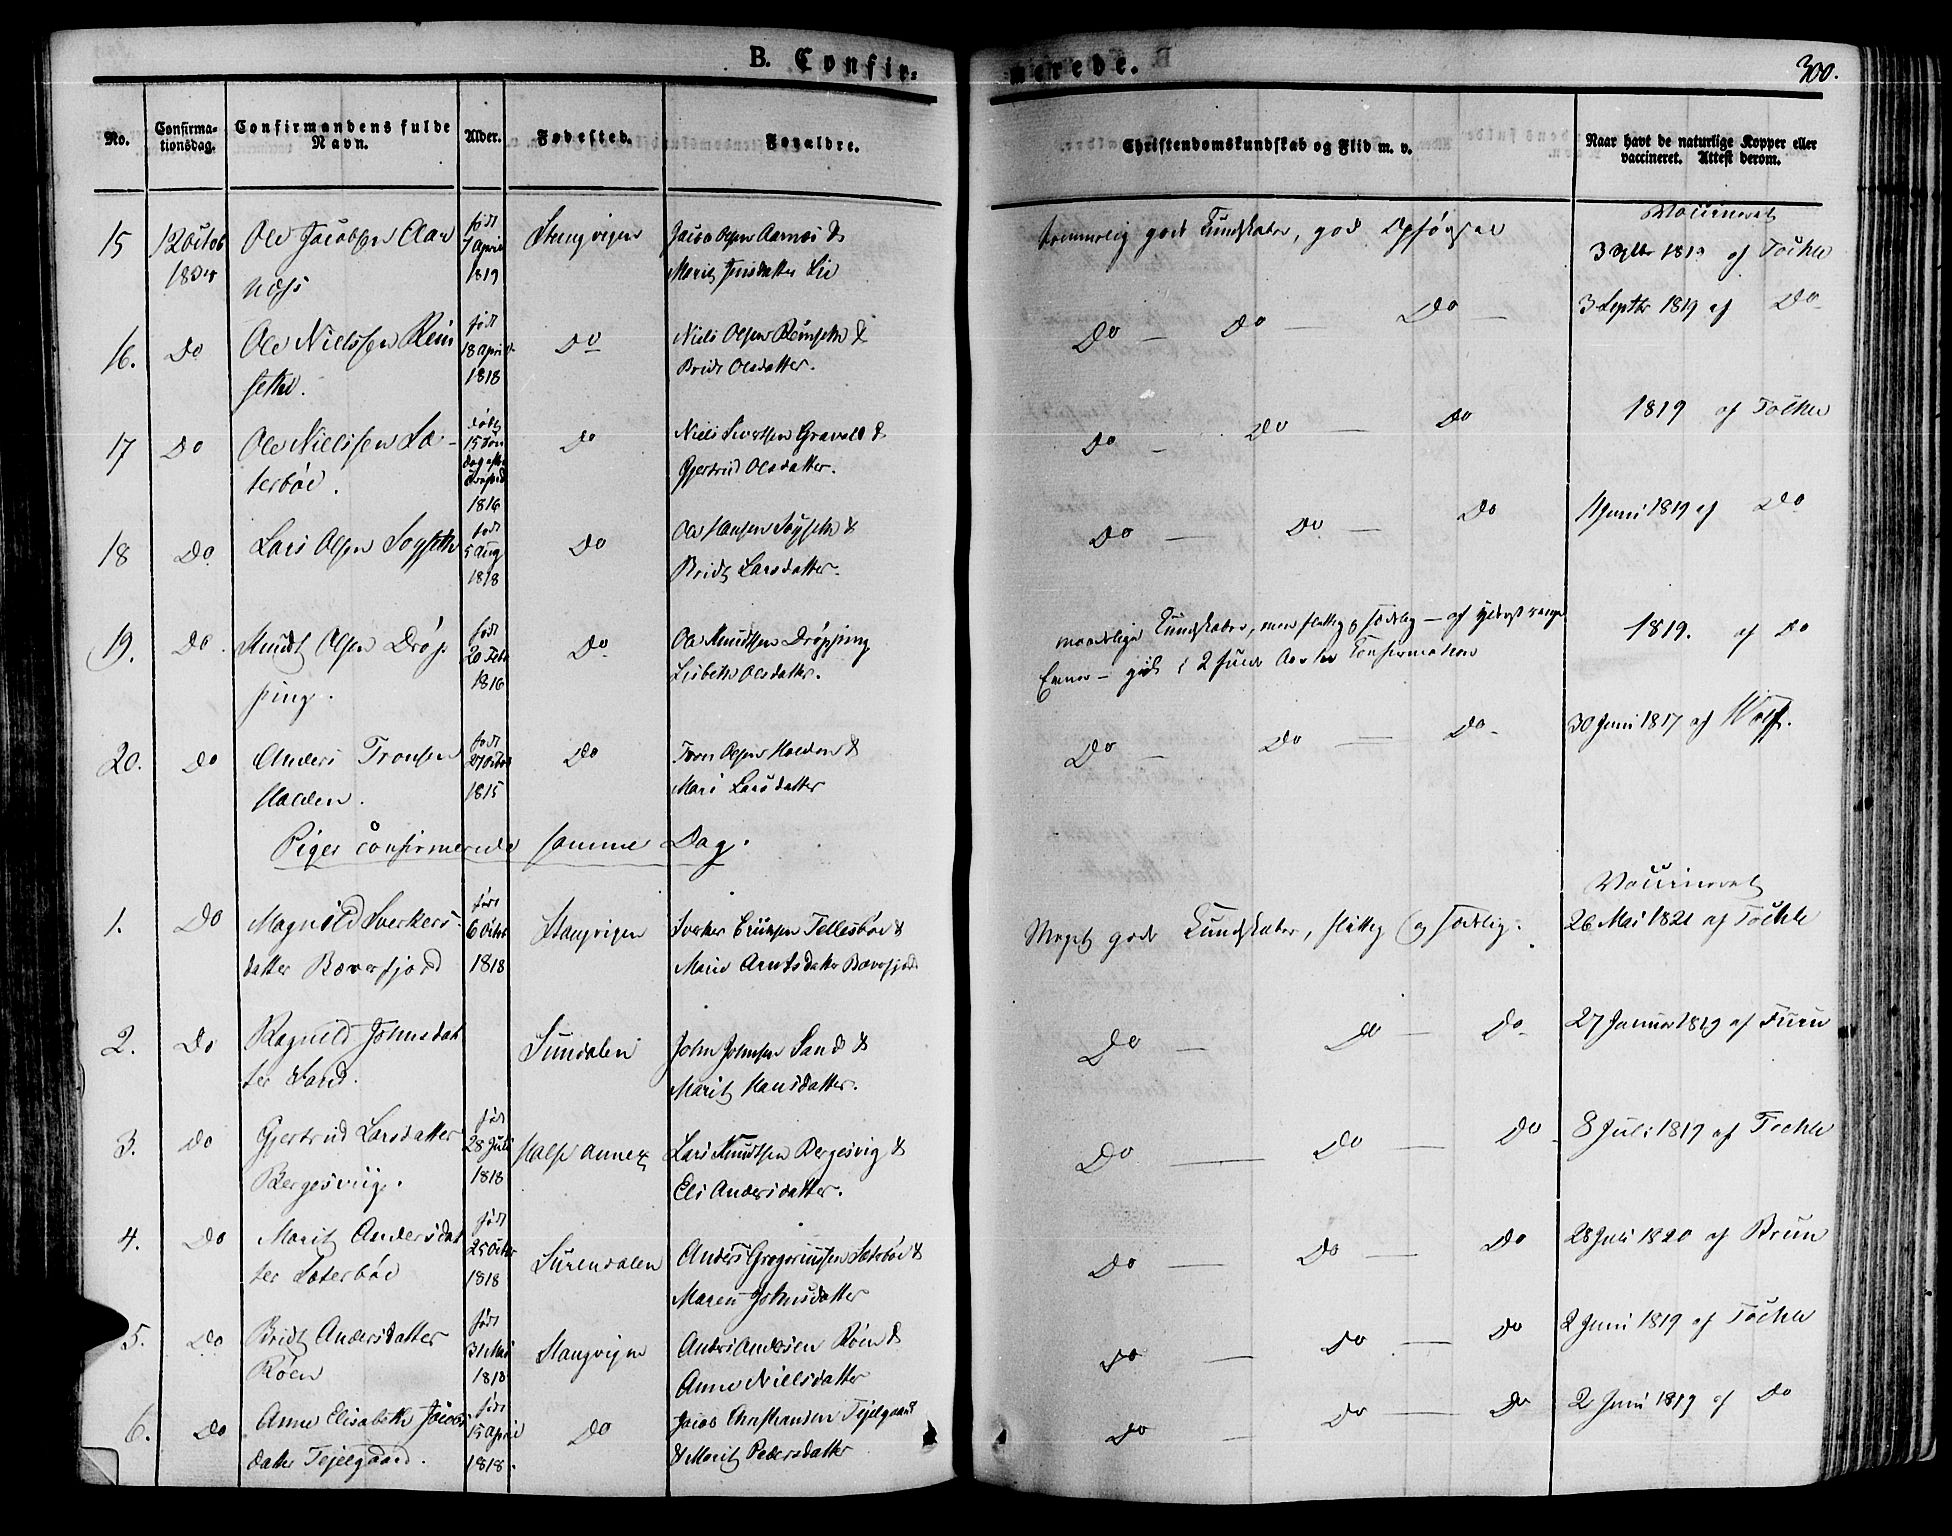 B. Confirmerede.
300.
No. Confirmationsdag. Confirmandens fulde Navn. Alder. Fødested. Forældre. Christendomskundskab og Flid m. v. Naar havt de naturlige Kopper eller vaccineret. Attest derom.
15 12 Octob 1834 Ole Jacobsen Aarnæss født 7 April 1819 Stangvigen Jacob Olsen Aarnæs & Marit Jensdatter Lie temmelig gode Kundskaber, god Opførsel Vaccineret 3 1819 af Tøchle
16. Do Ole Nielssen Reinsethe. født 18 April 1818 Do Niels Olsen Reinseth & Bridt Olsdatter. Do — Do — Do — 3 Septbr 1819 af Do
17 Do Ole Nielssen Sæterbøe. døbt 15 Søndag efter 1816 Do Niels Sivertsen Gravold & Gjertrud Olsdatter. Do — Do — Do 1819 af Tøchle
18 Do Lars Olsen Sogseth født 5 Aug 1818 Do Ole Hansen Sogseth & Bridt Larsdatter. Do — Do — Do 11 Juni 1819 af Do
19. Do Knudt Olsen Drøpping. født 20 Feb 1816 Do Ole Knudtsen Drøpping Lisbeth Olsdatter. maadelige Kundskaber, men flittig og sædelig — af yderst ringe Evner — gik i 2 fulde Aar til Confirmation 1819. af Do
20. Do Anders Tronsen Halden. født 27 Octob 1815 Do Tron Olsen Halden & Mari Larsdatter Do — Do — Do 30 Juni 1817 af
Piger confirmerede samme Dag.
1. Do Magnild Sverkersdatter Bæverfjord født 6 Octob 1818 Stangvigen Sverker Erichsen Tellesbøe & Marie Arntsdatter Bæverfjord Meget gode Kundskaber, flittig og sædelig. Vaccineret 26 Mai 1821 af Tøchle
2. Do Ragnild Johnsdatter Sand. Sundalen John Johnsen Sand & Marit Hansdatter. Do — Do — Do 27 Januar 1819 af Furu
3. Do Gjertrud Larsdatter Bergesviig. født 28 Juli 1818 Halse Annex Lars Knudtsen Bergesvig & Eli Andersdatter. Do — Do — Do 8 Juli 1819 af Tøchle
4. Do Marit Andersdatter Sæterbøe født 25 Octbr 1818 Surendalen Anders Gregoriussen Sæterbøe & Maren Johnsdatter Do — Do — Do 28 Juli 1820 af Brun
5. Do Bridt Andersdatter Røen født 31 Mai 1818 Stangvigen Anders Andersen Røen & Anne Nielsdatter Do — Do — Do 2 Juni 1819 af Tøchle
6. Do Anne Elisabeth Jacobsdatter Tejelgaard. født 15 April 1818. Do Jacob Christiansen Tejelgaard & Marit Pedersdatter Do — Do — Do 2 Juni 1819 af Do